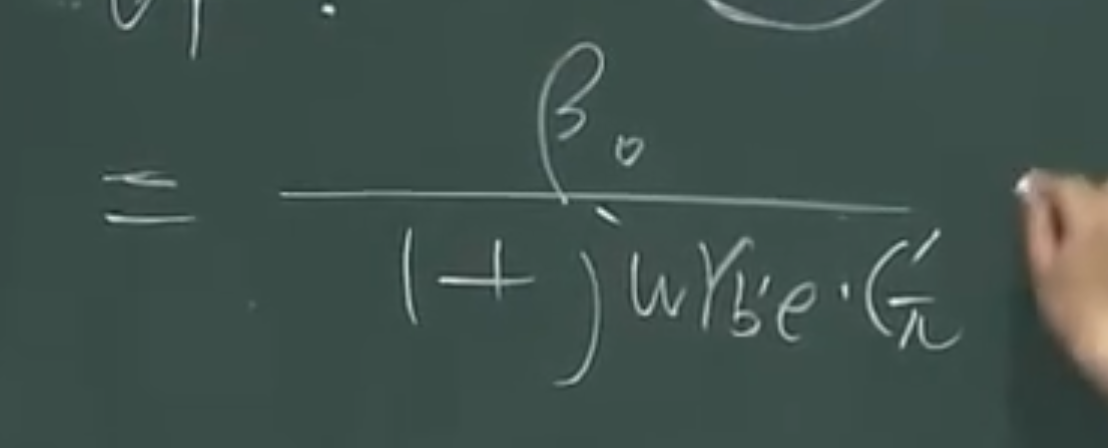 β₀
= ―――――
1 + jωr_{b'e}·C'_π